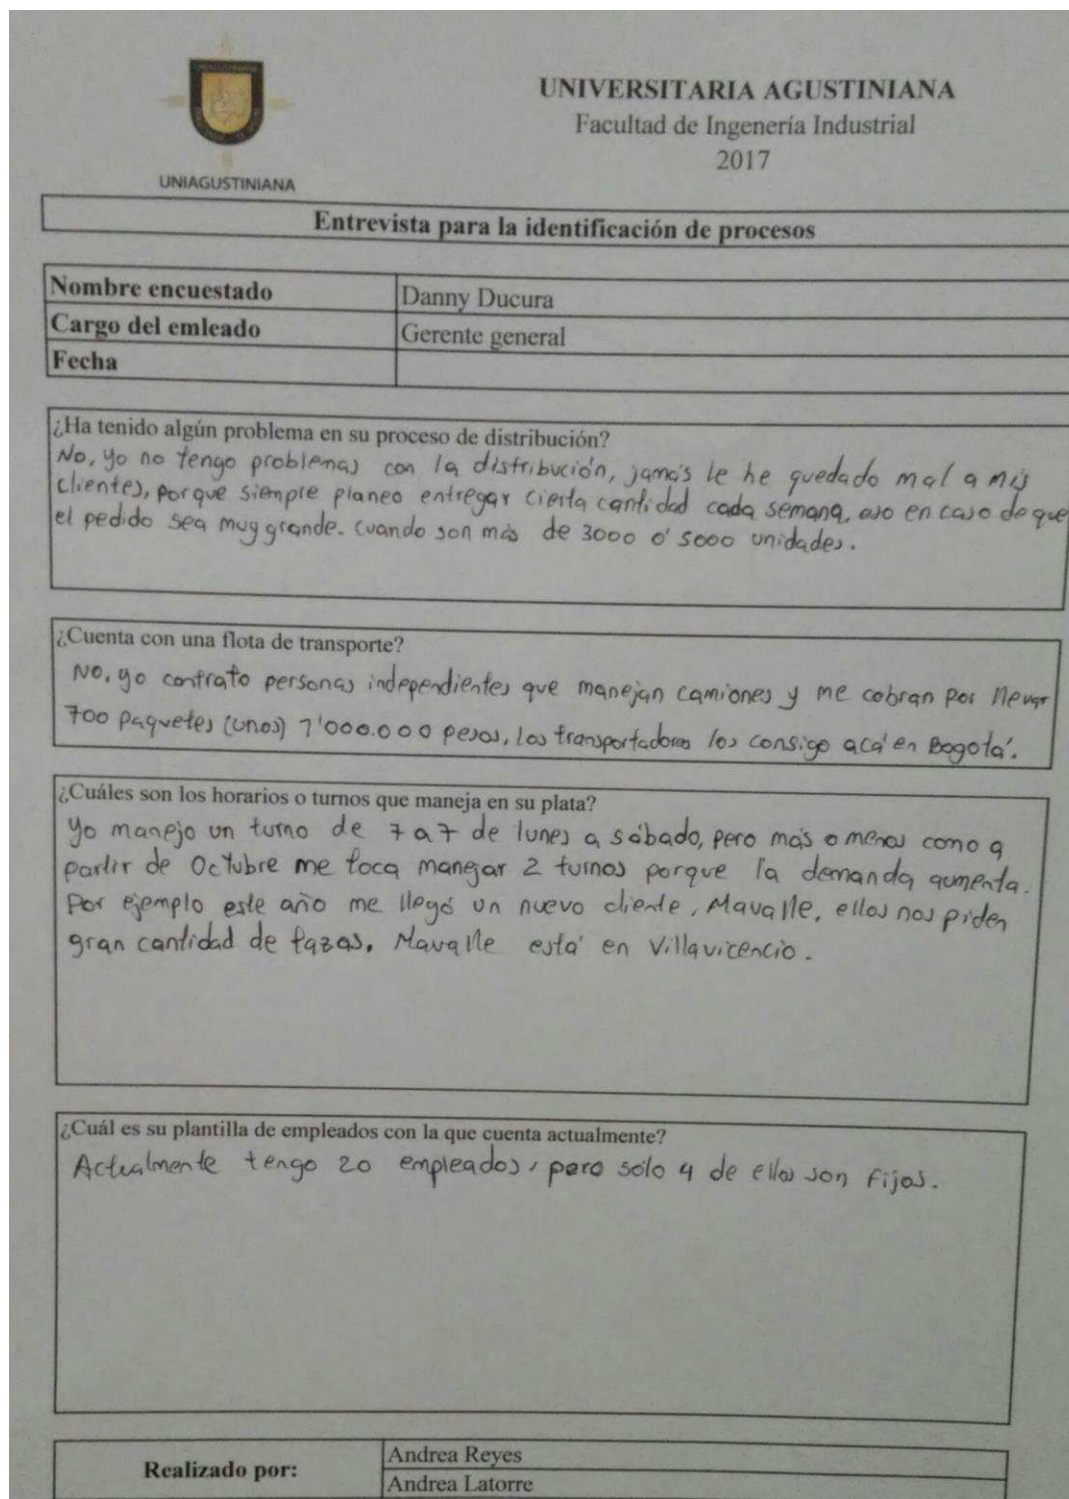 UNIVERSITARIA AGUSTINIANA
Facultad de Ingenería Industrial
2017
UNIAGUSTINIANA
Entrevista para la identificación de procesos
Nombre encuestado Danny Ducura
Cargo del emleado Gerente general
Fecha
¿Ha tenido algún problema en su proceso de distribución?
No, yo no tengo problemas con la distribución, jamás le he quedado mal a mis
clientes, porque siempre planeo entregar cierta cantidad cada semana, eso en caso de que
el pedido sea muy grande. Cuando son más de 3000 ó 5000 unidades.
¿Cuenta con una flota de transporte?
No, yo contrato personas independientes que manejan camiones y me cobran por llevar
700 paquetes (unos) 1'000.000 pesos, los transportadores los consigo acá en Bogotá.
¿Cuáles son los horarios o turnos que maneja en su plata?
Yo manejo un turno de 7 a 7 de lunes a sábado, pero más o menos como a
partir de Octubre me toca manejar 2 turnos porque la demanda aumenta.
Por ejemplo este año me llegó un nuevo cliente, Mavalle, ellos nos piden
gran cantidad de tazas, Mavalle está en Villavicencio.
¿Cuál es su plantilla de empleados con la que cuenta actualmente?
Actualmente tengo 20 empleados, pero sólo 4 de ellos son fijos.
Realizado por: Andrea Reyes
Andrea Latorre